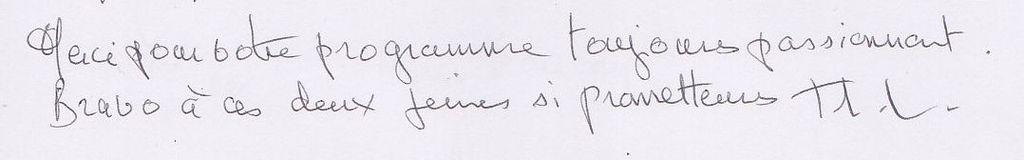 Merci pour votre programme toujours passionnant.
Bravo à ces deux jeunes si prometteurs